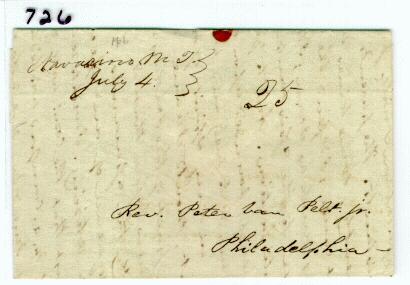 726
Navarino M T.
July 4.
25
Rev. Peter Van Pelt. Jr.
Philadelphia